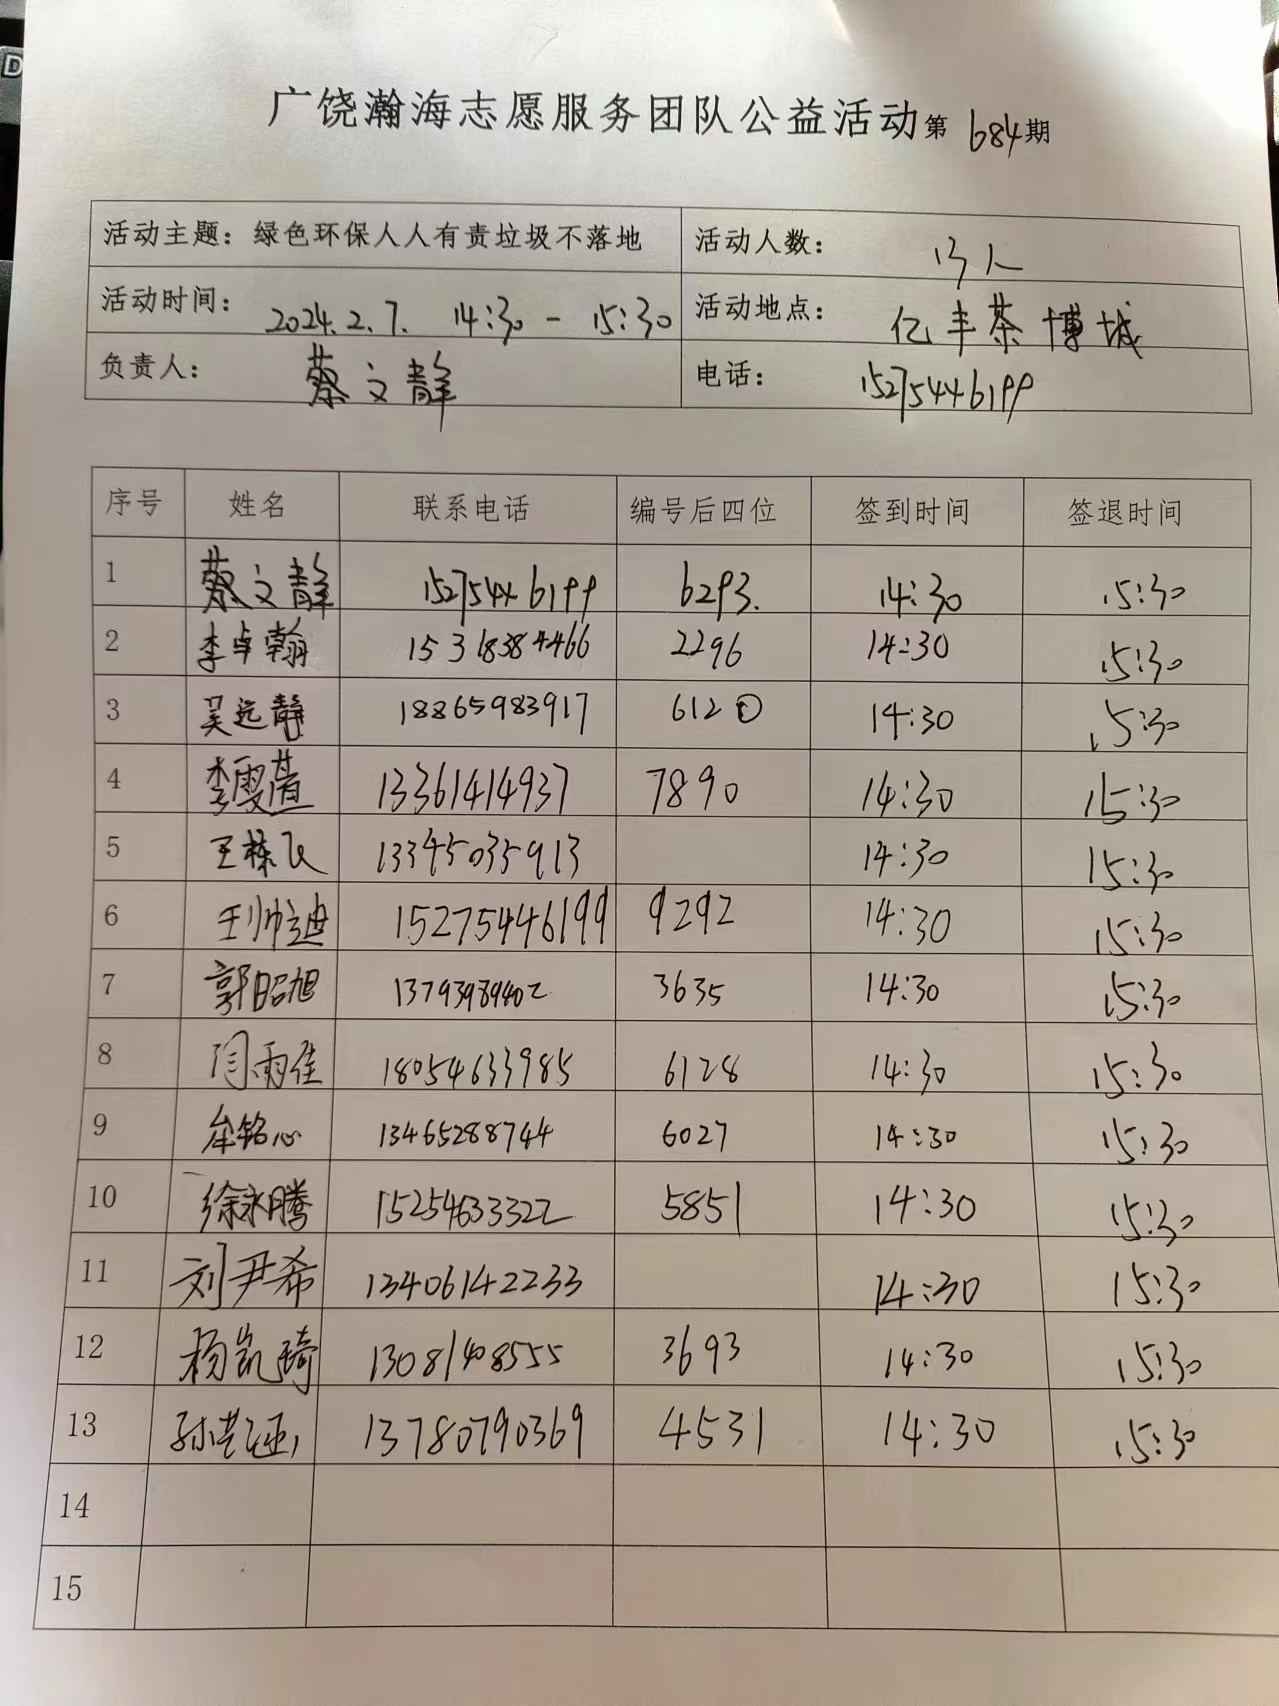 广饶瀚海志愿服务团队公益活动第 684 期
活动主题：绿色环保人人有责垃圾不落地 活动人数： 13人
活动时间： 2024.2.7. 14:30 - 15:30 活动地点： 亿丰茶博城
负责人： 蔡文静 电话： 15275446199
序号 姓名 联系电话 编号后四位 签到时间 签退时间
1 蔡文静 15275446199 6293. 14:30 15:30
2 李卓翰 15318384466 2296 14:30 15:30
3 吴远静 18865983917 6120 14:30 15:30
4 李雯萱 13361414937 7890 14:30 15:30
5 王栋飞 13345035913 14:30 15:30
6 王帅迪 15275446199 9292 14:30 15:30
7 郭昭旭 13793989402 3635 14:30 15:30
8 闫雨佳 18054633985 6128 14:30 15:30
9 牟铭心 13465288744 6027 14:30 15:30
10 徐永腾 15254633322 5851 14:30 15:30
11 刘尹希 13406142233 14:30 15:30
12 杨凯琦 13081408555 3693 14:30 15:30
13 13780790369 4531 14:30 15:30
14
15